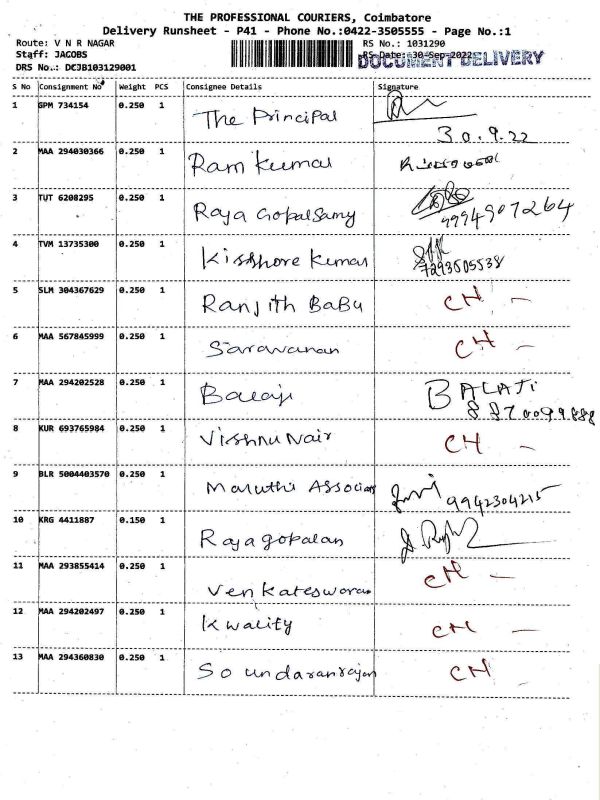 THE PROFESSIONAL COURIERS, Coimbatore
Delivery Runsheet - P41 - Phone No.:0422-3505555 - Page No.:1
Route: V N R NAGAR RS No.: 1031290
Staff: JACOBS RS Date: 30-Sep-2022
DOCUMENT DELIVERY
DRS No..: DCJB103129001
S No Consignment No Weight PCS Consignee Details Signature
1 GPM 734154 0.250 1 The Principal
30.9.22
2 MAA 294030366 0.250 1 Ram Kumar
3 TUT 6208295 0.250 1 Raja Gopalsamy
9994907264
4 TVM 13735300 0.250 1 Kisshore Kumar
7293505538
5 SLM 304367629 0.250 1 Ranjith BaBu CH -
6 MAA 567845999 0.250 1 Saravanan CH -
7 MAA 294202528 0.250 1 Balaji BALAJI
8870099888
8 KUR 693765984 0.250 1 Vishnu Nair CH -
9 BLR 5004403570 0.250 1 Maruthi Associat 9942304215
10 KRG 4411887 0.150 1 Rajagopalan
11 MAA 293855414 0.250 1 Venkateswaran CH -
12 MAA 294202497 0.250 1 Kwality CH -
13 MAA 294360830 0.250 1 Soundaranrajan CH